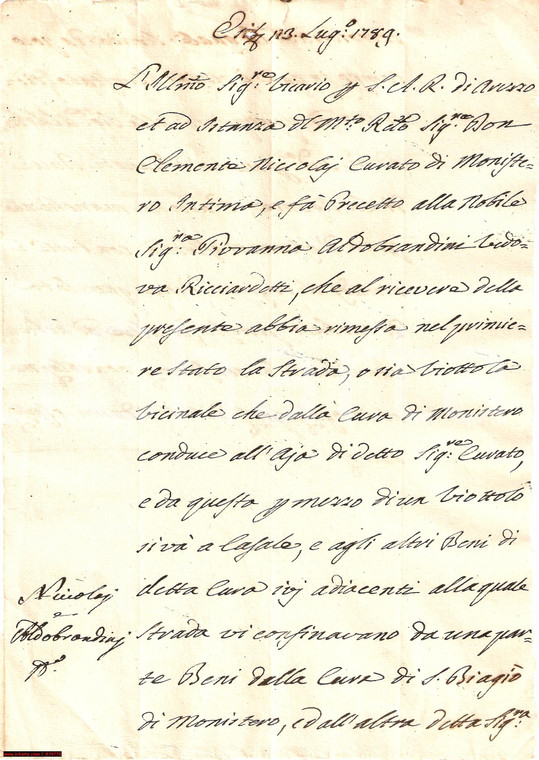 13. Lug.º 1789.
L'Illmo Sig.re Vicario p S. A. R. di Arezzo
et ad Istanza del M.to R.do Sig.re Don
Clemente Niccolaj Curato di Moniste=
ro Intima, e fà Precetto alla Nobile
Sig.ra Giovanna Aldobrandini Vedo=
va Ricciardetti, che al ricevere della
presente abbia rimessa nel primie=
re stato la Strada, o sia Viottola
vicinale che dalla Cura di Monistero
conduce all'Aja di detto Sig.re Curato,
e da questa p mezzo di un Viottolo
si và a Casale, e agli altri Beni di
detta Cura ivj adiacenti alla quale
Strada vi confinavano da una par=
te Beni dalla Cura di S. Biagio
di Monistero, e dall'altra detta Sig.ra
Niccolaj
e
Aldobrandinj